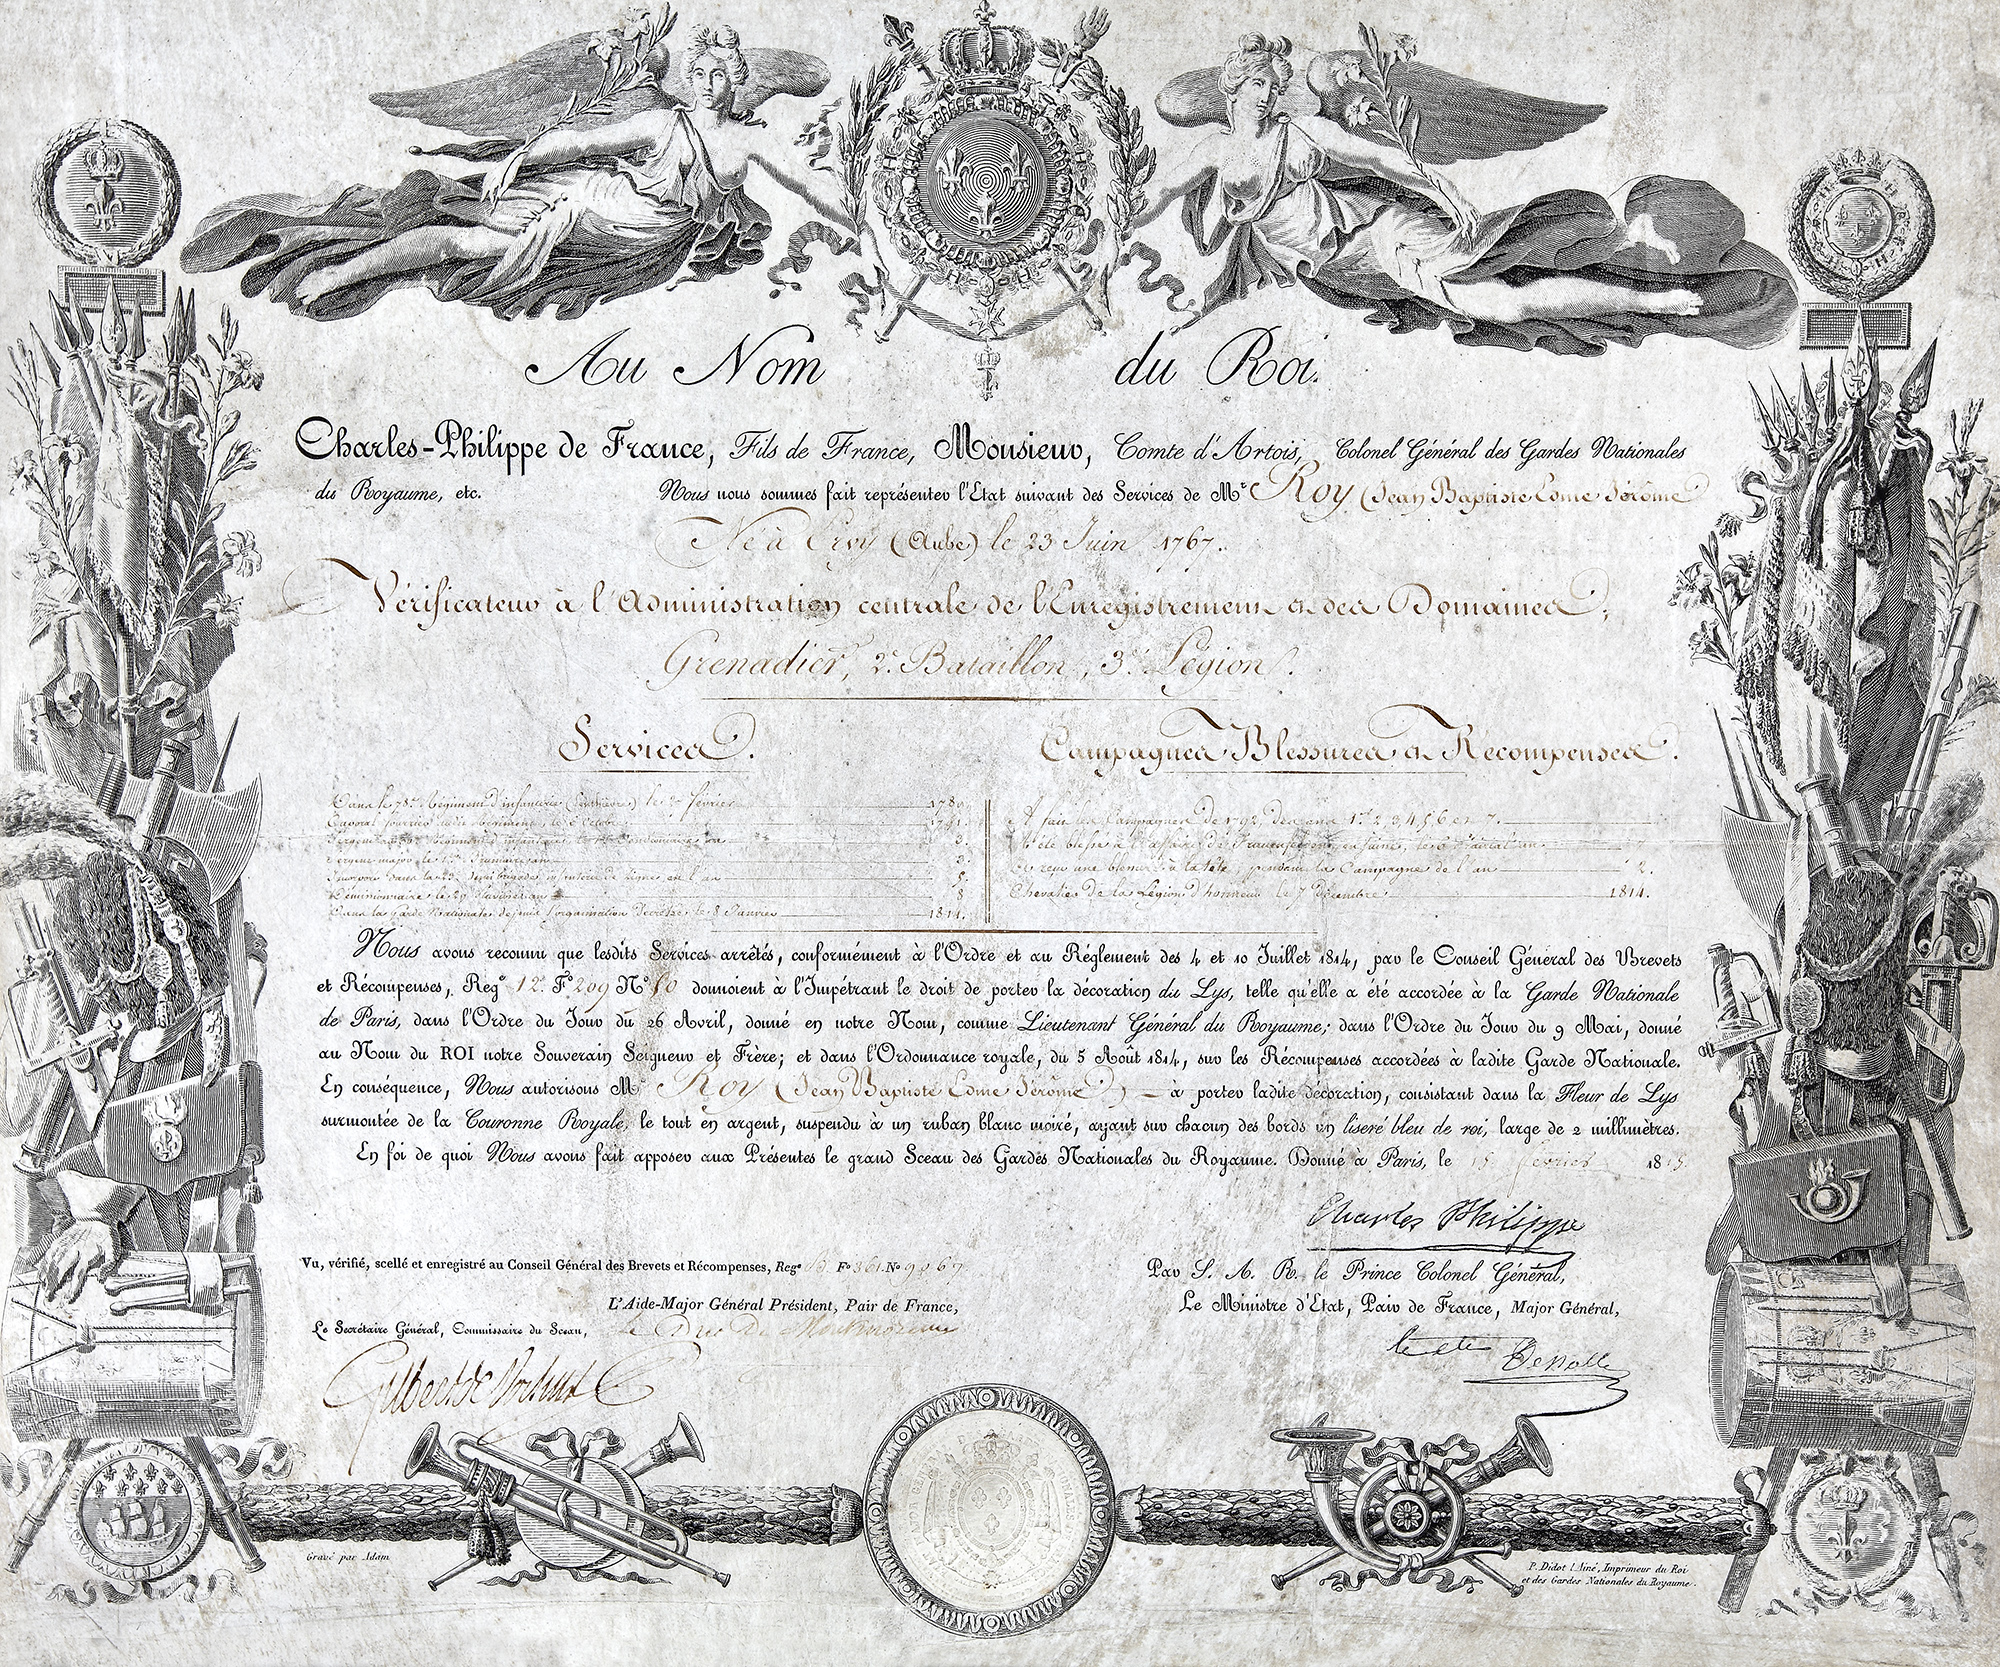 Au Nom du Roi.
Charles-Philippe de France, Fils de France, Monsieur, Comte d'Artois, Colonel Général des Gardes Nationales
du Royaume, etc. Nous nous sommes fait représenter l'Etat suivant des Services de Mr. Roy (Jean Baptiste Côme Jérôme
Né à Ervy (Aube) le 23 Juin 1767.
Vérificateur à l'Administration centrale de l'Enregistrement et des Domaines,
Grenadier, 2e. Bataillon, 3e. Légion.
Services. Campagnes Blessures et Récompenses.
Dans le 78me. Régiment d'infanterie le février
Caporal fourrier audit Régiment, le Octobre 1791.
Sergent au Régiment d'infanterie le Vendémiaire an 3.
Sergent major le Brumaire an 3.
dans la demi brigade infanterie de ligne en l'an 5.
le 29 an 8
Dans la garde Nationale depuis l'organisation Décrétée, le 8 Janvier 1814.
A fait les Campagnes de 1792, des ans 1er. 2, 3, 4, 5, 6 et 7.
A été blessé à l'affaire de le 6 Prairial an
Et reçu une blessure à la tête, pendant la Campagne de l'an 2.
Chevalier de la Légion d'honneur le 7 Décembre 1814.
Nous avons reconnu que lesdits Services arrêtés, conformément à l'Ordre et au Réglement des 4 et 10 Juillet 1814, par le Conseil Général des Brevets
et Récompenses, Rego 12e. Fo 209 No 50 donnoient à l'Impétrant le droit de porter la décoration du Lys, telle qu'elle a été accordée à la Garde Nationale
de Paris, dans l'Ordre du Jour du 26 Avril, donné en notre Nom, comme Lieutenant Général du Royaume; dans l'Ordre du Jour du 9 Mai, donné
au Nom du ROI notre Souverain Seigneur et Frère; et dans l'Ordonnance royale, du 5 Août 1814, sur les Récompenses accordées à ladite Garde Nationale.
En conséquence, Nous autorisons Mr Roy (Jean Baptiste Côme Jérôme) à porter ladite décoration, consistant dans la Fleur de Lys
surmontée de la Couronne Royale, le tout en argent, suspendu à un ruban blanc moiré, ayant sur chacun des bords un liseré bleu de roi, large de 2 millimètres.
En foi de quoi Nous avons fait apposer aux Présentes le grand Sceau des Gardes Nationales du Royaume. Donné à Paris, le 15 février 1815.
Charles Philippe
Vu, vérifié, scellé et enregistré au Conseil Général des Brevets et Récompenses, Rego Fo 361. No
Par S. A. R. le Prince Colonel Général,
L'Aide-Major Général Président, Pair de France,
Le Ministre d'Etat, Pair de France, Major Général,
Le Secrétaire Général, Commissaire du Sceau,
le Duc de
Gilbert de
Gravé par Adam
P. Didot l'Ainé, Imprimeur du Roi
et des Gardes Nationales du Royaume.